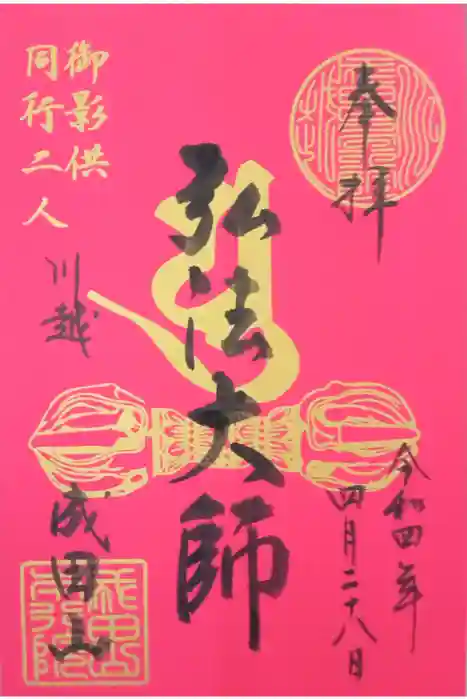 奉拝
弘法大師
御影供
同行二人
川越
成田山
令和四年
四月二十八日